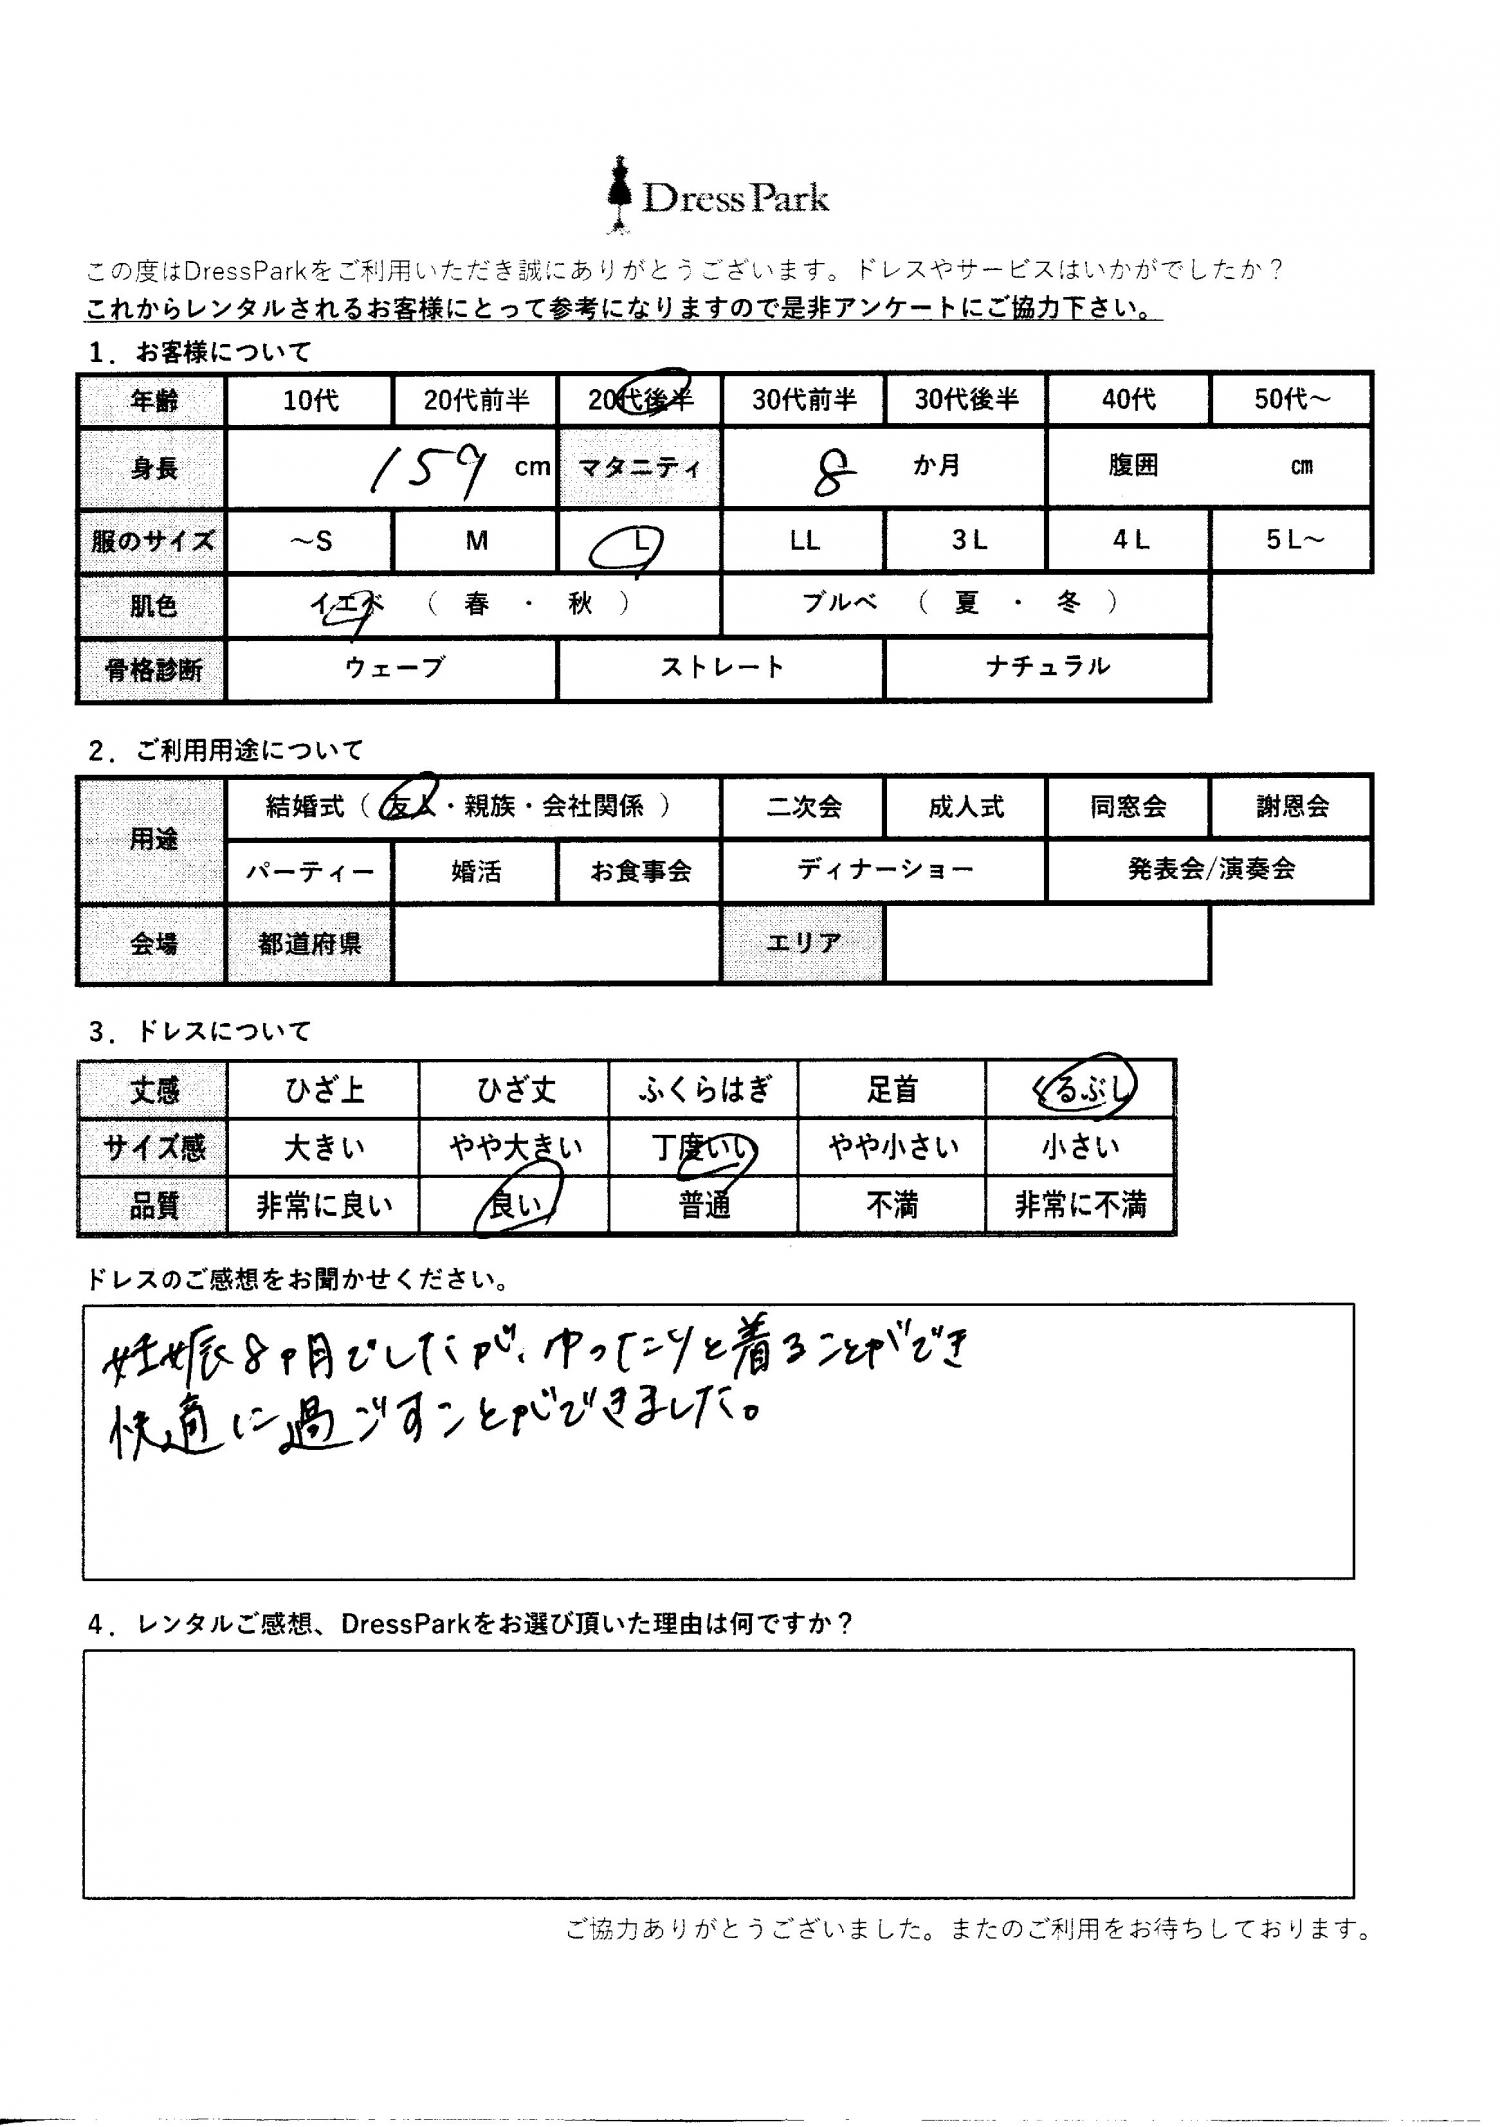 DressPark
この度はDressParkをご利用いただき誠にありがとうございます。ドレスやサービスはいかがでしたか？
これからレンタルされるお客様にとって参考になりますので是非アンケートにご協力下さい。
1．お客様について
年齢 10代 20代前半 20代後半 30代前半 30代後半 40代 50代～
身長 159 cm マタニティ 8 か月 腹囲 ㎝
服のサイズ ～S M L LL 3L 4L 5L～
肌色 イエベ （ 春 ・ 秋 ） ブルベ （ 夏 ・ 冬 ）
骨格診断 ウェーブ ストレート ナチュラル
2．ご利用用途について
用途 結婚式（ 友人・親族・会社関係 ） 二次会 成人式 同窓会 謝恩会
パーティー 婚活 お食事会 ディナーショー 発表会/演奏会
会場 都道府県 エリア
3．ドレスについて
丈感 ひざ上 ひざ丈 ふくらはぎ 足首 くるぶし
サイズ感 大きい やや大きい 丁度いい やや小さい 小さい
品質 非常に良い 良い 普通 不満 非常に不満
ドレスのご感想をお聞かせください。
妊娠8ヶ月でしたが、ゆったりと着ることができ
快適に過ごすことができました。
4．レンタルご感想、DressParkをお選び頂いた理由は何ですか？
ご協力ありがとうございました。またのご利用をお待ちしております。